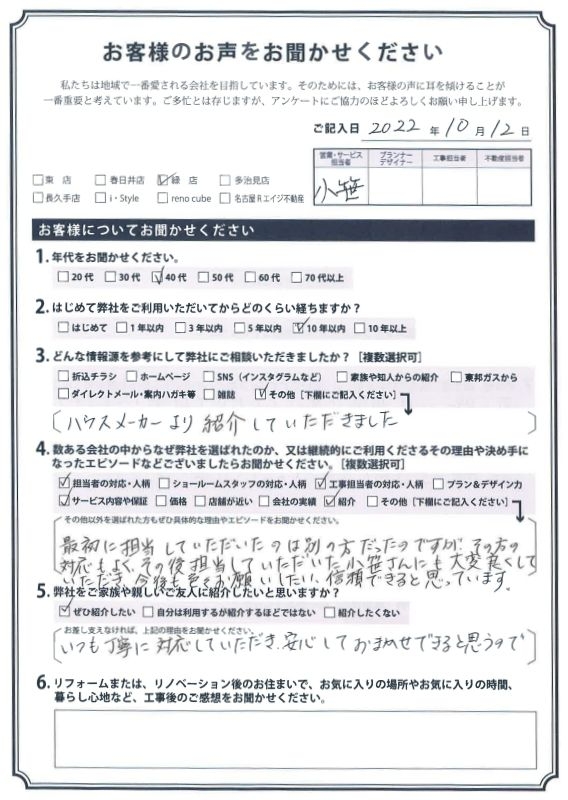 お客様のお声をお聞かせください
私たちは地域で一番愛される会社を目指しています。そのためには、お客様の声に耳を傾けることが
一番重要と考えています。ご多忙とは存じますが、アンケートにご協力のほどよろしくお願い申し上げます。
ご記入日 2022 年 10 月 12 日
営業・サービス担当者 プランナーデザイナー 工事担当者 不動産担当者
小笹
□東 店 □春日井店 ☑緑 店 □多治見店
□長久手店 □i・Style □reno cube □名古屋Rエイジ不動産
お客様についてお聞かせください
1. 年代をお聞かせください。
□20代 □30代 ☑40代 □50代 □60代 □70代以上
2. はじめて弊社をご利用いただいてからどのくらい経ちますか?
□はじめて □1年以内 □3年以内 □5年以内 ☑10年以内 □10年以上
3. どんな情報源を参考にして弊社にご相談いただきましたか?[複数選択可]
□折込チラシ □ホームページ □SNS(インスタグラムなど) □家族や知人からの紹介 □東邦ガスから
□ダイレクトメール・案内ハガキ等 □雑誌 ☑その他[下欄にご記入ください]
ハウスメーカーより紹介していただきました
4. 数ある会社の中からなぜ弊社を選ばれたのか、又は継続的にご利用くださるその理由や決め手に
なったエピソードなどございましたらお聞かせください。[複数選択可]
☑担当者の対応・人柄 □ショールームスタッフの対応・人柄 ☑工事担当者の対応・人柄 □プラン&デザイン力
☑サービス内容や保証 □価格 □店舗が近い □会社の実績 ☑紹介 □その他[下欄にご記入ください]
その他以外を選ばれた方もぜひ具体的な理由やエピソードをお聞かせください。
最初に担当していただいたのは別の方だったのですが、その方の
対応もよく、その後担当していただいた小笹さんにも大変良くして
いただき、今後も お願いしたい、信頼できると思っています。
5. 弊社をご家族や親しいご友人に紹介したいと思いますか?
☑ぜひ紹介したい □自分は利用するが紹介するほどではない □紹介したくない
お差し支えなければ、上記の理由をお聞かせください。
いつも丁寧に対応していただき、安心しておまかせできると思うので
6. リフォームまたは、リノベーション後のお住まいで、お気に入りの場所やお気に入りの時間、
暮らし心地など、工事後のご感想をお聞かせください。